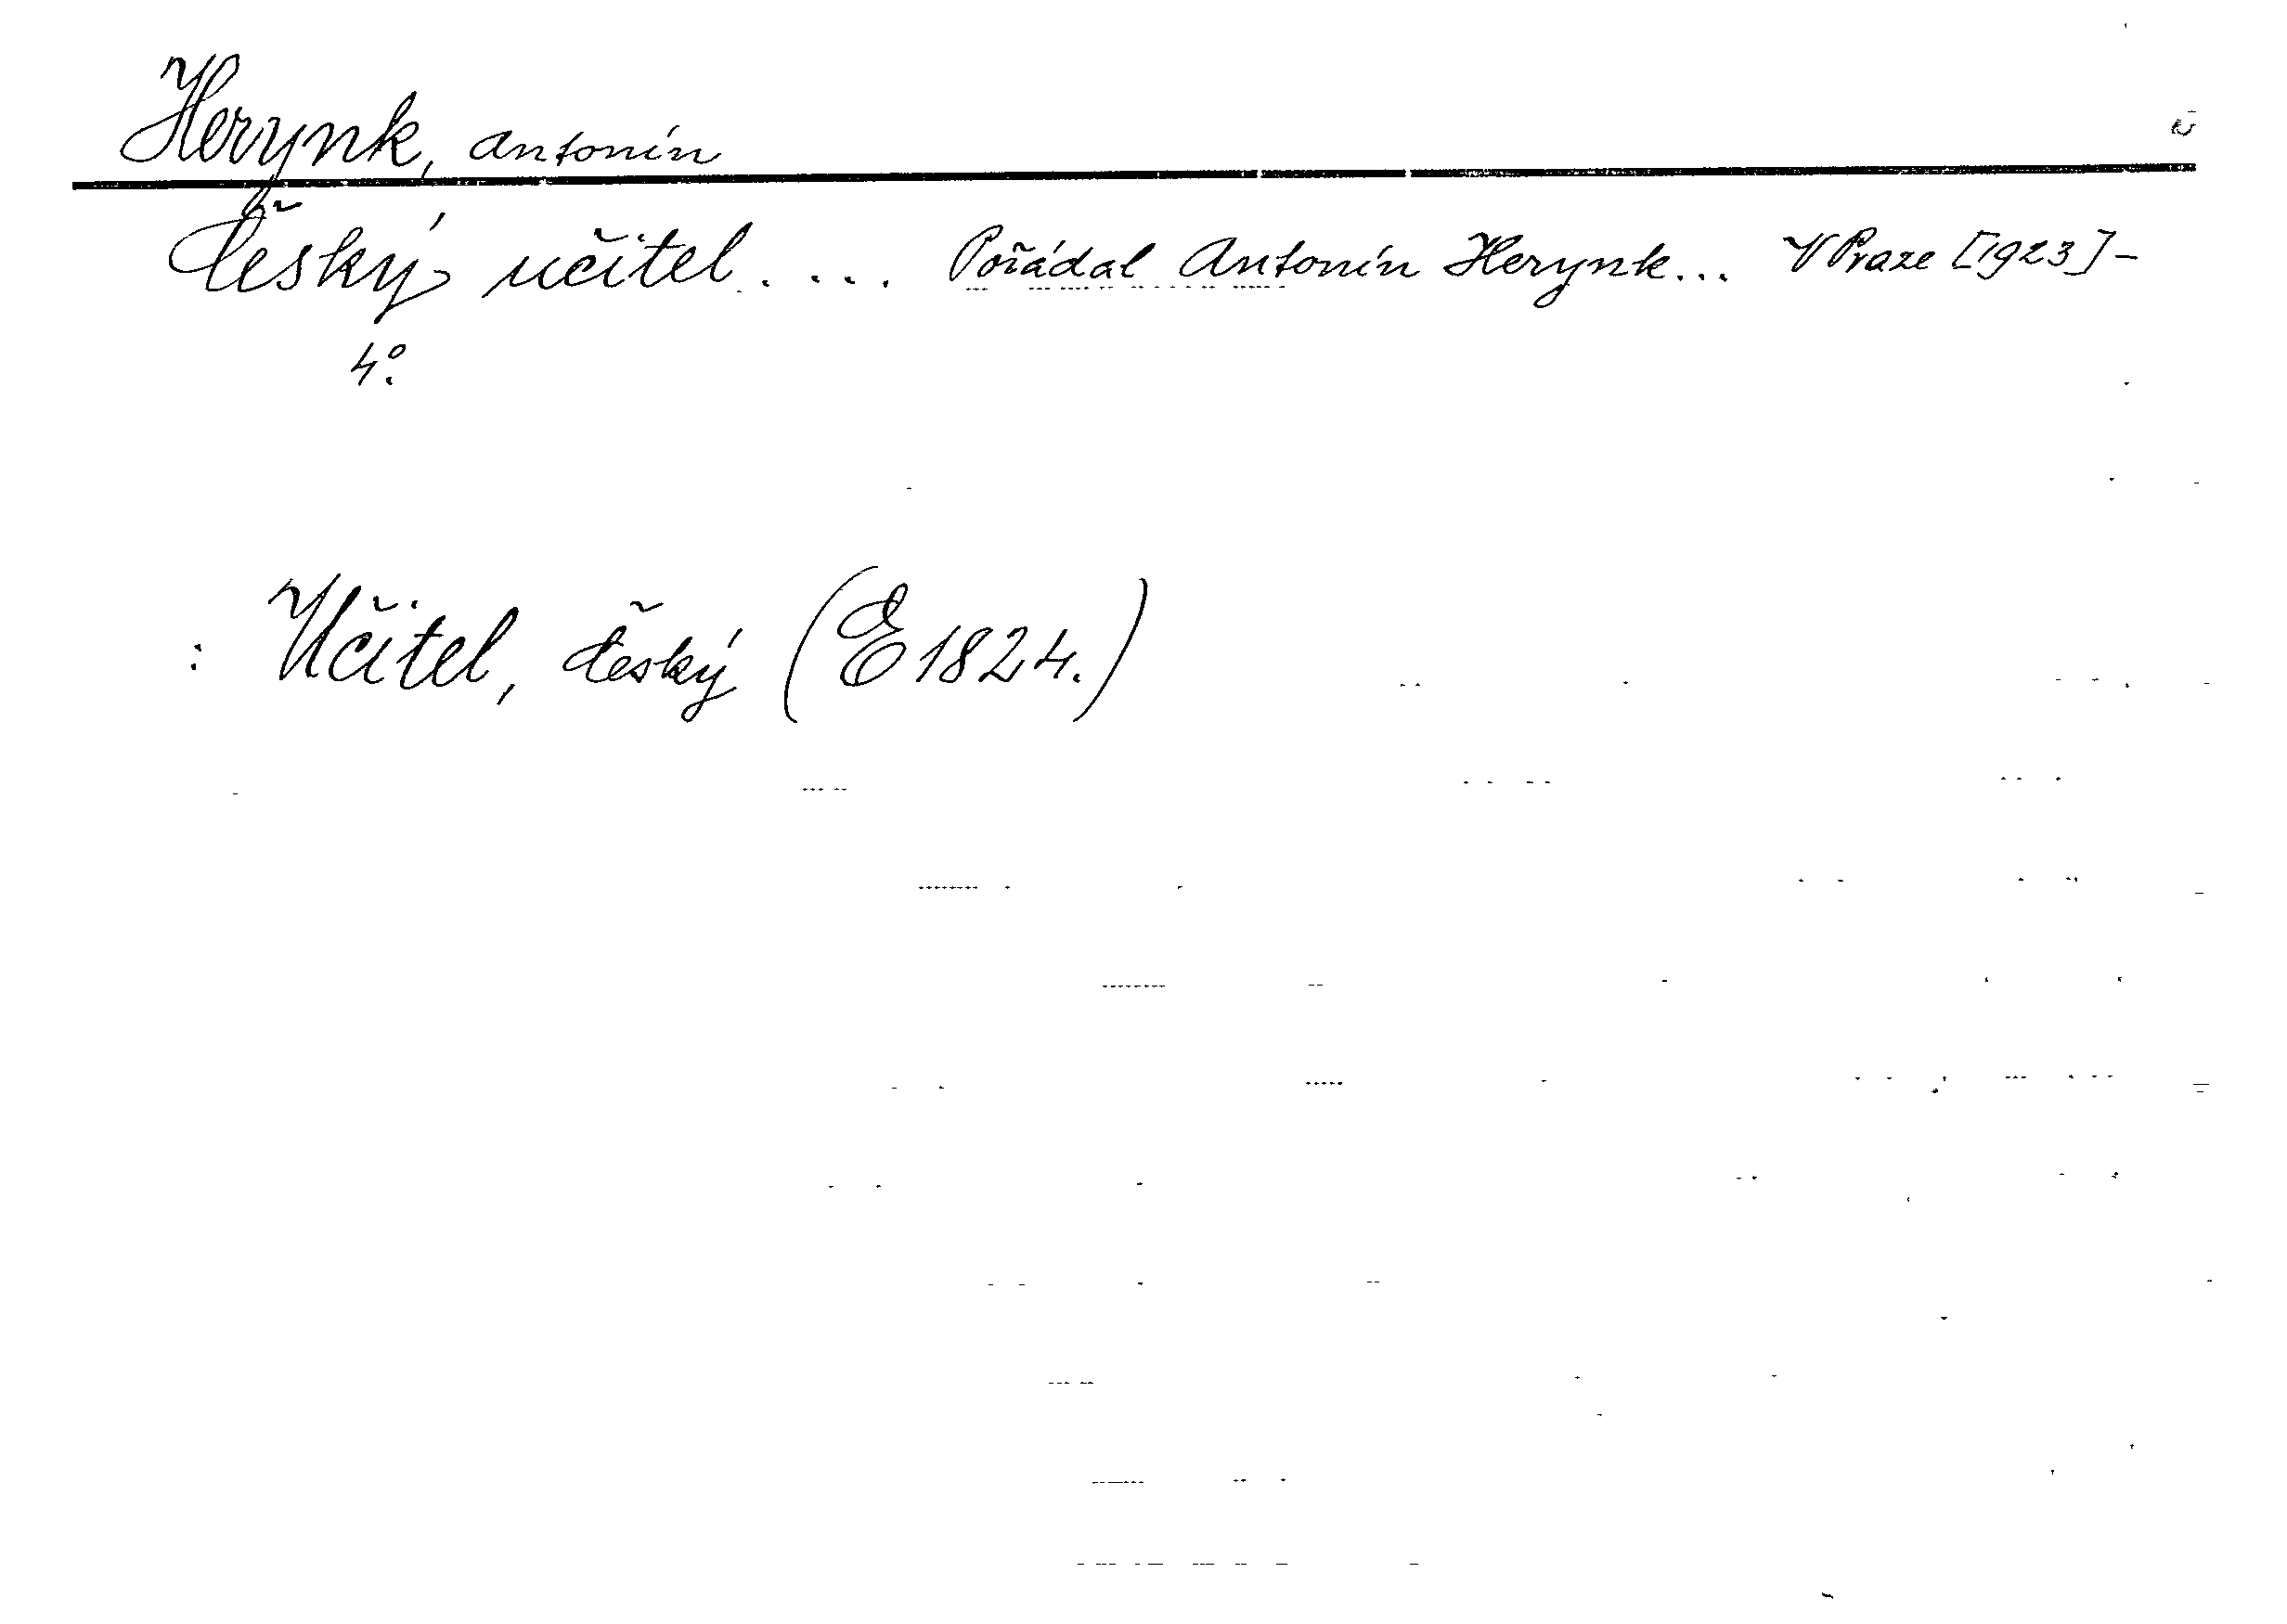 Herynk, Antonín
Český učitel.... Pořádal Antonín Herynk... V Praze [1923] –
4°.
: Učitel, český (E 1824.)